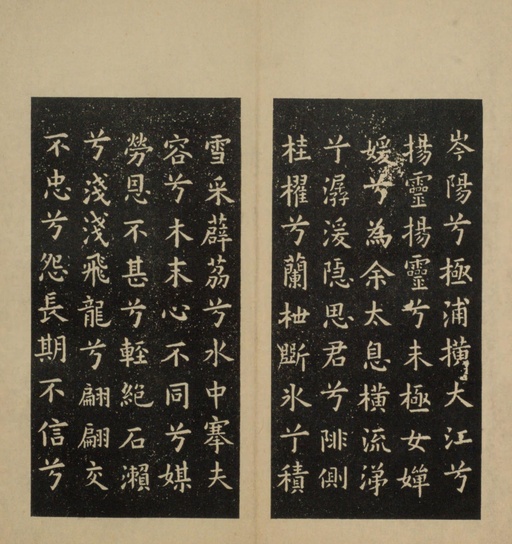 岑陽兮極浦橫大江兮
揚靈揚靈兮未極女嬋
媛兮為余太息橫流涕
兮潺湲隐思君兮陫側
桂櫂兮蘭枻斷氷兮積
雪采薜荔兮水中搴夫
容兮木末心不同兮媒
勞恩不甚兮輕絕石瀨
兮淺淺飛龍兮翩翩交
不忠兮怨長期不信兮